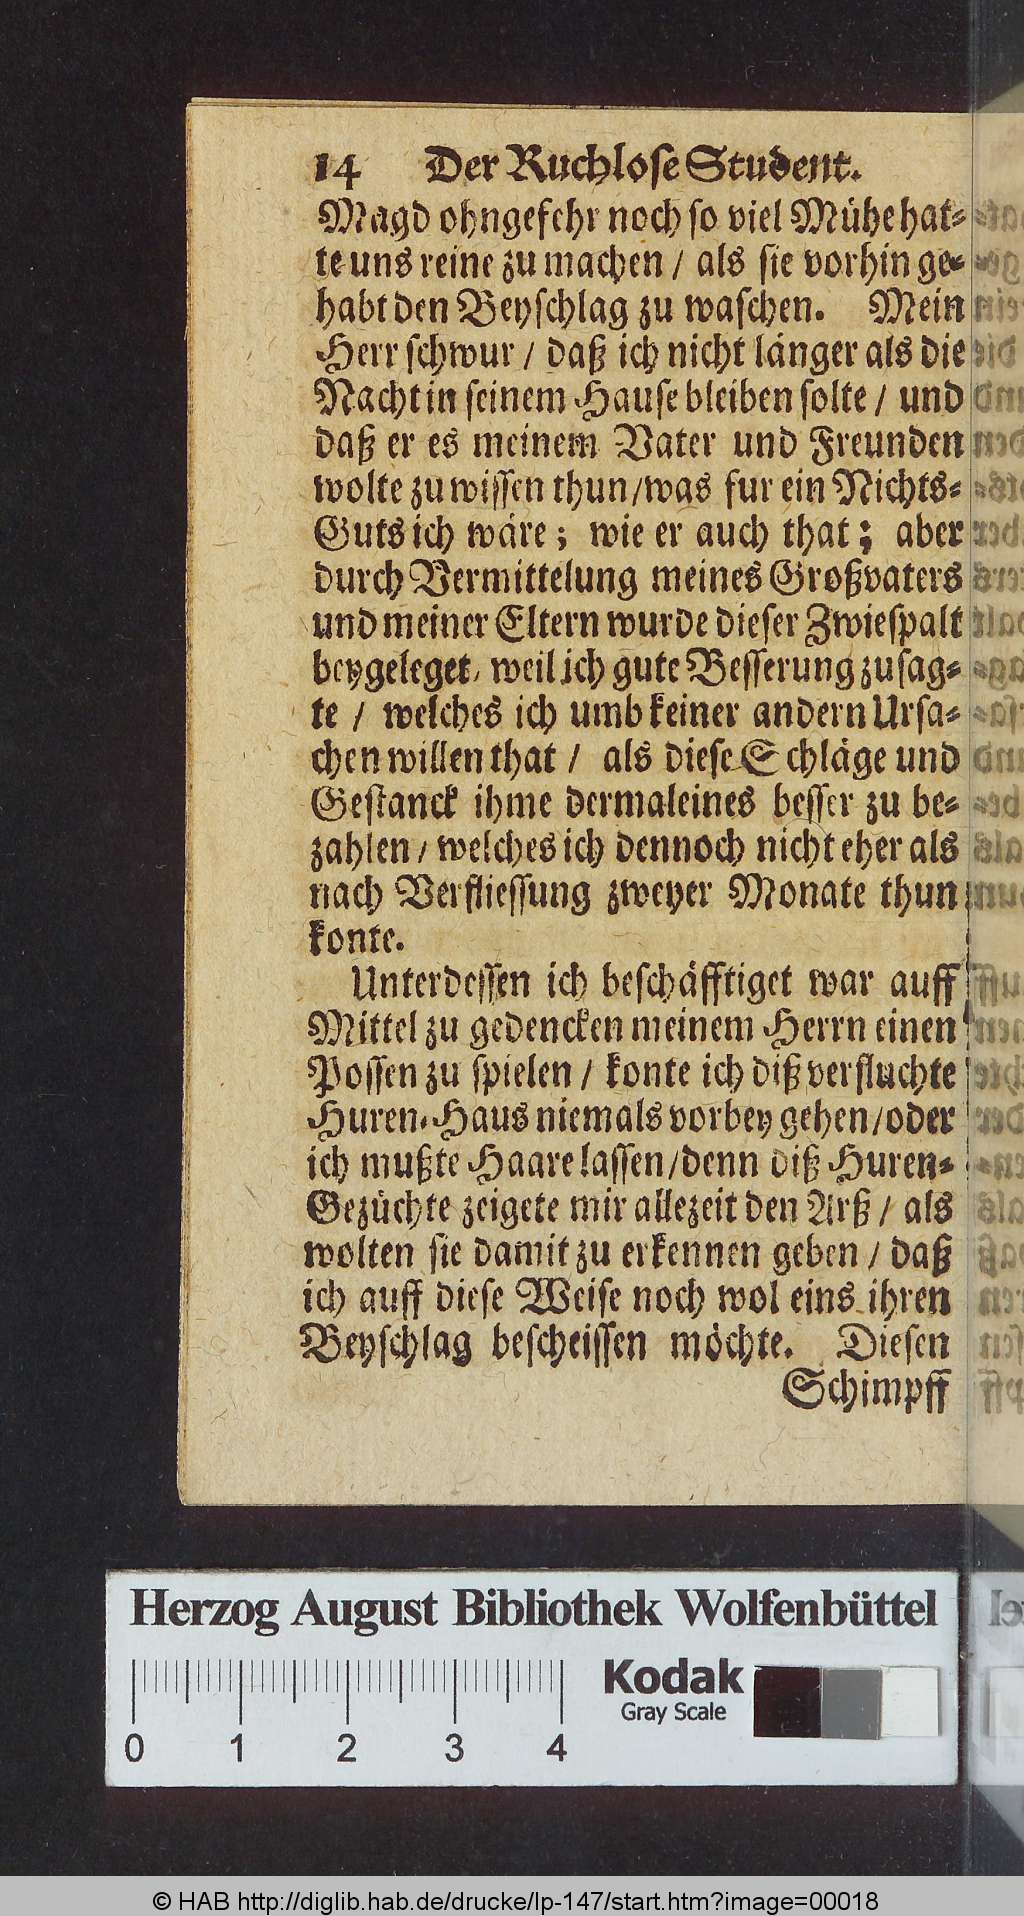 14 Der Ruchlose Student.
Magd ohngefehr noch so viel Mühe hat-
te uns reine zu machen / als sie vorhin ge-
habt den Beyschlag zu waschen. Mein
Herr schwur / daß ich nicht länger als die
Nacht in seinem Hause bleiben solte / und
daß er es meinem Vater und Freunden
wolte zu wissen thun / was fur ein Nichts-
Guts ich wäre; wie er auch that; aber
durch Vermittelung meines Großvaters
und meiner Eltern wurde dieser Zwiespalt
beygeleget, weil ich gute Besserung zusag-
te / welches ich umb keiner andern Ursa-
chen willen that / als diese Schläge und
Gestanck ihme dermaleines besser zu be-
zahlen / welches ich dennoch nicht eher als
nach Verfliessung zweyer Monate thun
konte.
Unterdessen ich beschäfftiget war auff
Mittel zu gedencken meinem Herrn einen
Possen zu spielen / konte ich diß verfluchte
Huren-Haus niemals vorbey gehen / oder
ich mußte Haare lassen / denn diß Huren-
Gezüchte zeigete mir allezeit den Arß / als
wolten sie damit zu erkennen geben / daß
ich auff diese Weise noch wol eins ihren
Beyschlag bescheissen möchte. Diesen
Schimpff
Herzog August Bibliothek Wolfenbüttel
Kodak
Gray Scale
0 1 2 3 4
© HAB http://diglib.hab.de/drucke/lp-147/start.htm?image=00018